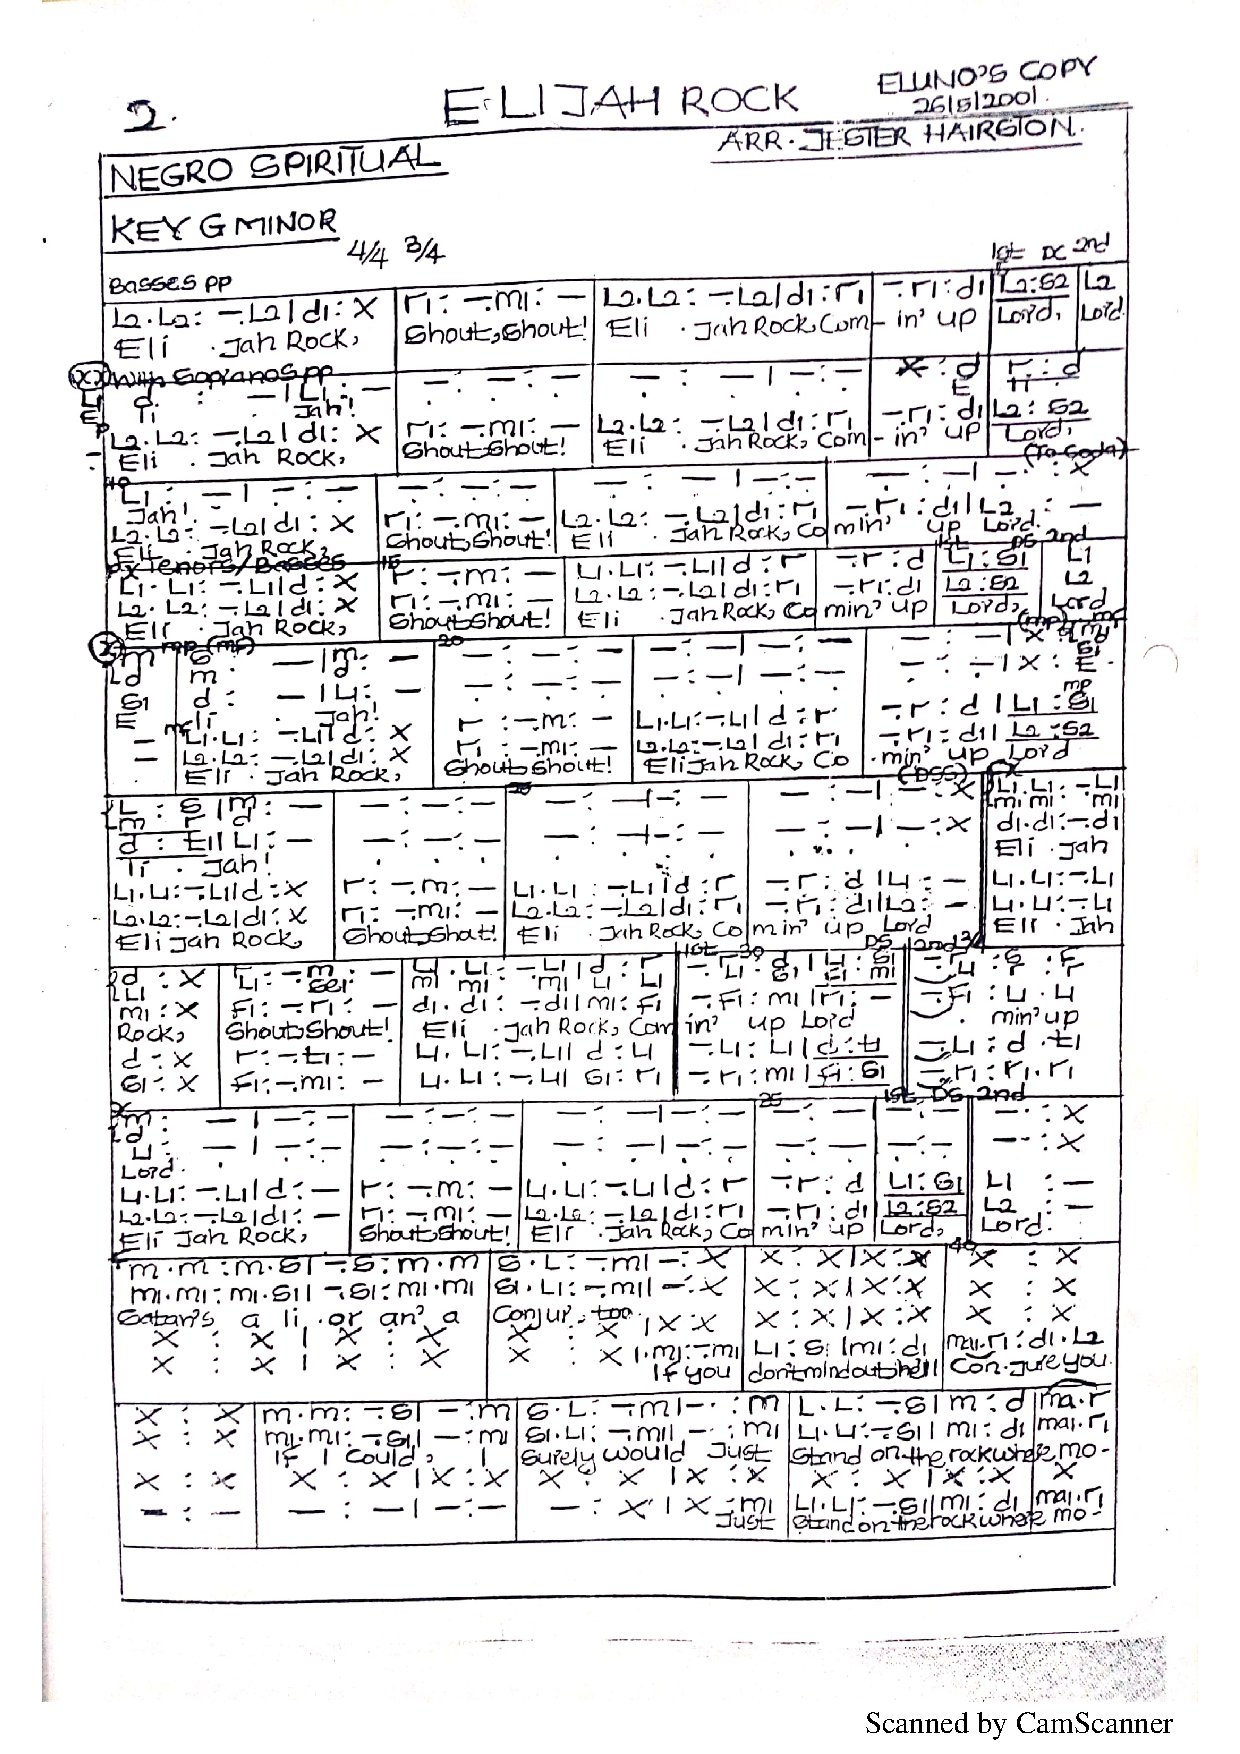 ELIJAH ROCK
ELUNO'S COPY
26/5/2001.
2.
ARR. JESTER HAIRSTON.
NEGRO SPIRITUAL
KEY G MINOR
4/4 3/4
1st DC 2nd
Basses pp
L2.L2: -.L2|d1: X r1: -.m1: - L2.L2: -.L2|d1:r1 -.r1:d1 L2:S2 L2
Eli . Jah Rock, Shout, Shout! Eli . Jah Rock, Com- in' up Lord, Lord
With Sopranos pp
d : - | L1: - - : - : - - : - | - : - X : d r : d
Ti Jah! E Ti
L2.L2: -.L2|d1: X r1: -.m1: - L2.L2: -.L2|d1:r1 -.r1:d1 L2:S2
Eli . Jah Rock, Shout, Shout! Eli . Jah Rock, Com- in' up Lord,
(To Coda)
L1 : - | - : - - : - : - - : - | - : - - : - | - : X
Jah!
L2.L2: -.L2|d1: X r1: -.m1: - L2.L2: -.L2|d1:r - .r1:d1|L2 : -
Eli . Jah Rock, Shout, Shout! Eli . Jah Rock, Co min' up Lord.
Tenors/Basses 15 1st DS 2nd
L1.L1: -.L1|d: X r: -.m: - L1.L1: -.L1|d:r -.r:d L1:S1 L1
L2.L2: -.L2|d1: X r1: -.m1: - L2.L2: -.L2|d1:r1 -.r1:d1 L2:S2 L2
Eli . Jah Rock, Shout, Shout! Eli . Jah Rock, Co min' up Lord, Lord
mp (mf) 20
m S : - |m: - - : - : - - : - | - : - - : - |X
d m d
S1 d : - |L1: - - : - |X : E
E li Jah! mp
L1.L1: -.L1|d: X r : -.m: - L1.L1:-.L1|d:r -.r:d|L1:S1
L2.L2: -.L2|d1: X r1: -.m1: - L2.L2:-.L2|d1:r1 -.r1:d1|L2:S2
Eli . Jah Rock, Shout, Shout! Eli Jah Rock, Co . min' up Lord
(DSS)
L : S |m: - - : - : - - : - | - : - - : - | - : X L1.L1: -.L1
m r d m1 m1: m1
d : E1|L1: - - : - | - : X d1.d1:-.d1
Ti . Jah! Eli . Jah
L1.L1:-.L1|d:X r: -.m: - L1.L1 : -.L1|d:r -.r:d|L1: - L1.L1:-.L1
L2.L2:-.L2|d1:X r1: -.m1: - L2.L2: -.L2|d1:r1 -.r1:d1|L2: - L1.L1:-.L1
Eli Jah Rock, Shout, Shout! Eli . Jah Rock, Co min' up Lord Eli . Jah
1st 30 DS 2nd 3/4
d : X L1: -.m: -
L1
m1 : X f1: -.r1: - d1.d1: -.d1|m1: f1 -.f1:m1|r1: - -.f1 : L1 . L1
Rock, Shout, Shout! Eli . Jah Rock, Com in' up Lord . min' up
d : X r: -.t1: - L1.L1: -.L1|d:L1 -.L1:L1|d:t1 -.L1 : d . t1
S1: X f1: -.m1: - L1.L1: -.L1|S1:r1 -.r1:m1|f1:S1 -.r1:r1.r1
35 1st DS 2nd
m: - | - : - - : - : - - : - | - : - - : - - : - - : X
d
L1: - | - : - - : - : - - : - | - : - - : - - : - - : X
Lord.
L1.L1: -.L1|d: - r: -.m: - L1.L1: -.L1|d:r -.r:d L1:S1 L1 : -
L2.L2: -.L2|d1: - r1: -.m1: - L2.L2: -.L2|d1:r1 -.r1:d1 L2:S2 L2 : -
Eli Jah Rock, Shout, Shout! Eli . Jah Rock, Co min' up Lord, Lord.
40
m.m:m.S|-.S:m.m S.L: -.m|-: X X : X|X : X X : X
m1.m1:m1.S1|-.S1:m1.m1 S1.L1: -.m1|-: X X : X|X : X X : X
Satan's a li . or an' a Conjur . too. X : X|X : X X : X
X : X | X : X X : X |X:X L1:S1|m1:d1 ma1.r1:d1.L2
X : X | X : X X : X|.m1:-.m1
If you don't mind out he'll Con.jure you.
X : X m.m: -.S|-:m S.L: -.m|-:m L.L: -.S|m:d ma.r
X : X m1.m1: -.S1|-:m1 S1.L1: -.m1|-:m1 L1.L1:-.S1|m1:d1 ma1.r1
If I Could, I Surely would Just Stand on the rock where mo-
X : X X : X|X : X X : X|X : X X : X|X : X X
- : - - : - | - : - - : X|X : m1 L1.L1: -.S1|m1:d1 ma1.r1
Just Stand on the rock where mo-
Scanned by CamScanner